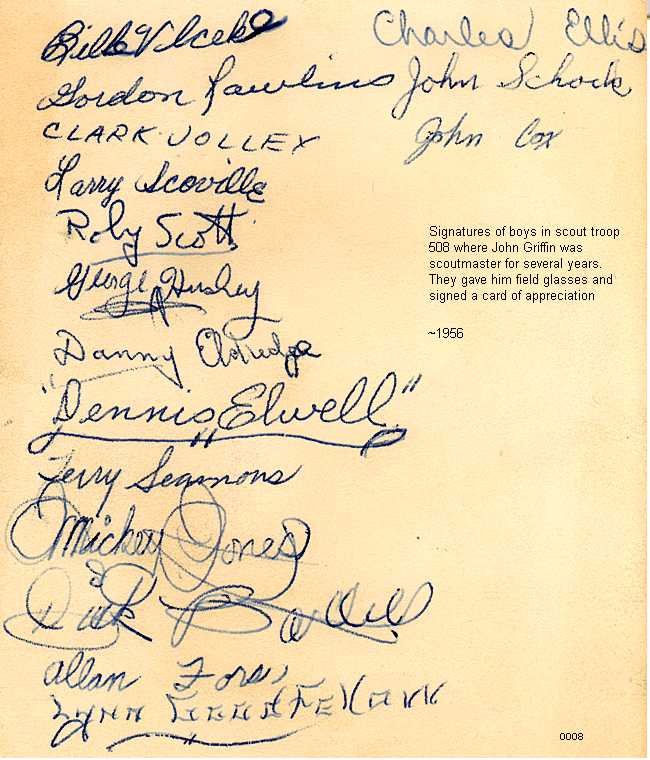 Charles Ellis
Gordon Rawlins
John Schock
CLARK JOLLEY
John Cox
Larry Scoville
Roby Scott
George Hushey
Danny Eldredge
"Dennis Elwell"
Terry Seamons
Mickey Jones
Dick
Allan
Lynn Goodfellow
Signatures of boys in scout troop
508 where John Griffin was
scoutmaster for several years.
They gave him field glasses and
signed a card of appreciation
~1956
0008